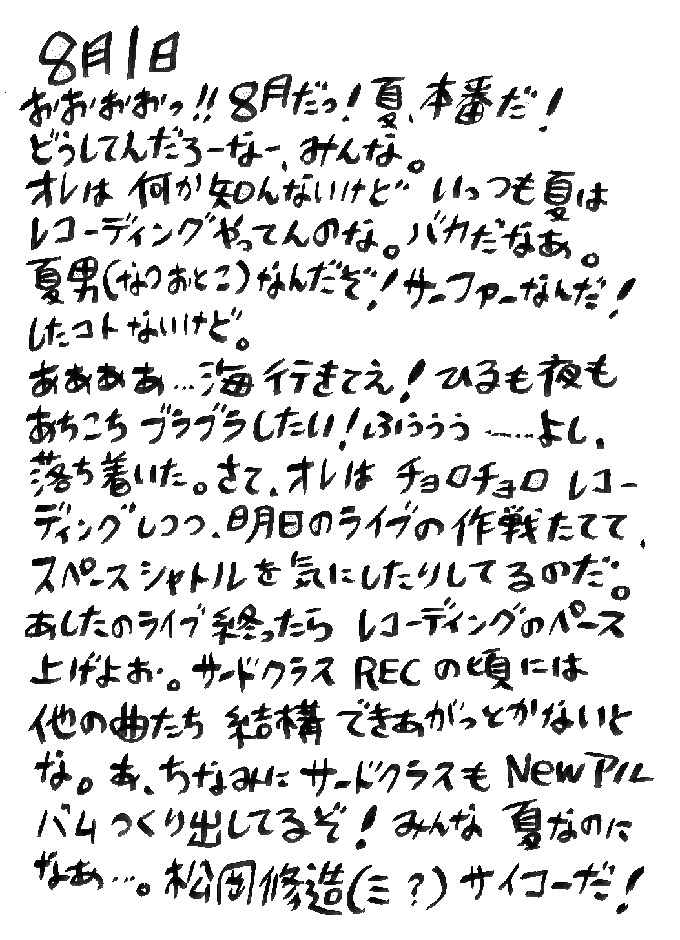 8月1日
おおおおっ!! 8月だっ! 夏、本番だ!
どうしてんだろーなー、みんな。
オレは 何か知んないけど いっつも夏は
レコーディングやってんのな。バカだなあ。
夏男(なつおとこ)なんだぞ! サーファーなんだ!
したコトないけど。
ああああ…海行きてえ! ひるも夜も
あちこち ブラブラしたい! ふううう……よし、
落ち着いた。さて、オレは チョロチョロ レコー
ディングしつつ、明日のライブの作戦たてて、
スペースシャトルを気にしたりしてるのだ。
あしたのライブ終ったら レコーディングのペース
上げよお。サードクラス RECの頃には
他の曲たち 結構 できあがっとかないと
な。あ、ちなみに サードクラスも Newアル
バムつくり出してるぞ! みんな 夏なのに
なあ…。松岡修造(ミ?) サイコーだ!